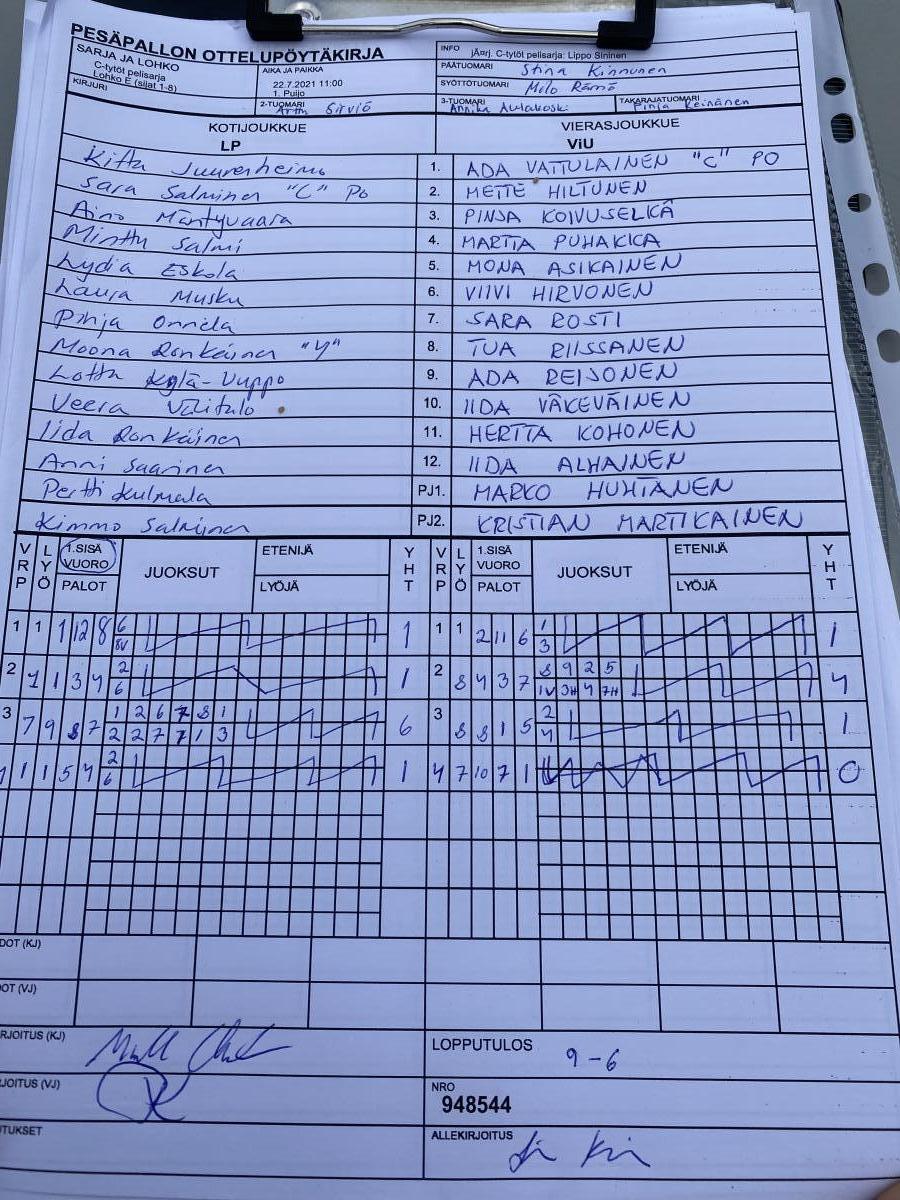 PESÄPALLON OTTELUPÖYTÄKIRJA
SARJA JA LOHKO
C-tytöt pelisarja
Lohko E (sijat 1-8)
AIKA JA PAIKKA
22.7.2021 11:00
1. Puijo
INFO
jÄ¤rj. C-tytöt pelisarja: Lippo Sininen
PÄÄTUOMARI Stina Kinnunen
SYÖTTÖTUOMARI Milo Rämö
KIRJURI
2-TUOMARI Arttu Sirviö
3-TUOMARI Annika Autakoski
TAKARAJATUOMARI Pinja Keinänen
KOTIJOUKKUE
LP
VIERASJOUKKUE
ViU
1. ADA VATTULAINEN "C" PO
Sara Salminen "C" Po 2. METTE HILTUNEN
Aino Mäntyvaara 3. PINJA KOIVUSELKÄ
Minttu Salmi 4. MARTTA PUHAKKA
Lydia Eskola 5. MONA ASIKAINEN
Laura Musku 6. VIIVI HIRVONEN
Pinja Onnela 7. SARA ROSTI
Moona Ronkainen "Y" 8. TUA RIISSANEN
Lotta Kylä-Uuppo 9. ADA REIJONEN
Veera Välitalo 10. IIDA VÄKEVÄINEN
Iida Ronkainen 11. HERTTA KOHONEN
Anni Saarinen 12. IIDA ALHAINEN
Pertti Kulmala PJ1. MARKO HUHTANEN
Kimmo Salminen PJ2. KRISTIAN MARTIKAINEN
VRP LYÖ 1.SISÄ VUORO PALOT JUOKSUT ETENIJÄ LYÖJÄ YHT
VRP LYÖ 1.SISÄ VUORO PALOT JUOKSUT ETENIJÄ LYÖJÄ YHT
1 1 1 12 8 6 1 1 1 2 11 6 1 1
8V 3
2 1 1 3 4 2 1 2 8 4 3 7 8 9 2 5 4
6 1V 3H 4 7H
3 7 9 8 7 1 2 6 7 8 1 6 3 8 8 1 5 2 1
2 2 7 7 1 3 4
1 1 5 4 2 1 4 7 10 7 1 0
6
DOT (KJ)
DOT (VJ)
RJOITUS (KJ)
LOPPUTULOS 9-6
JOITUS (VJ)
NRO
948544
UTUKSET
ALLEKIRJOITUS